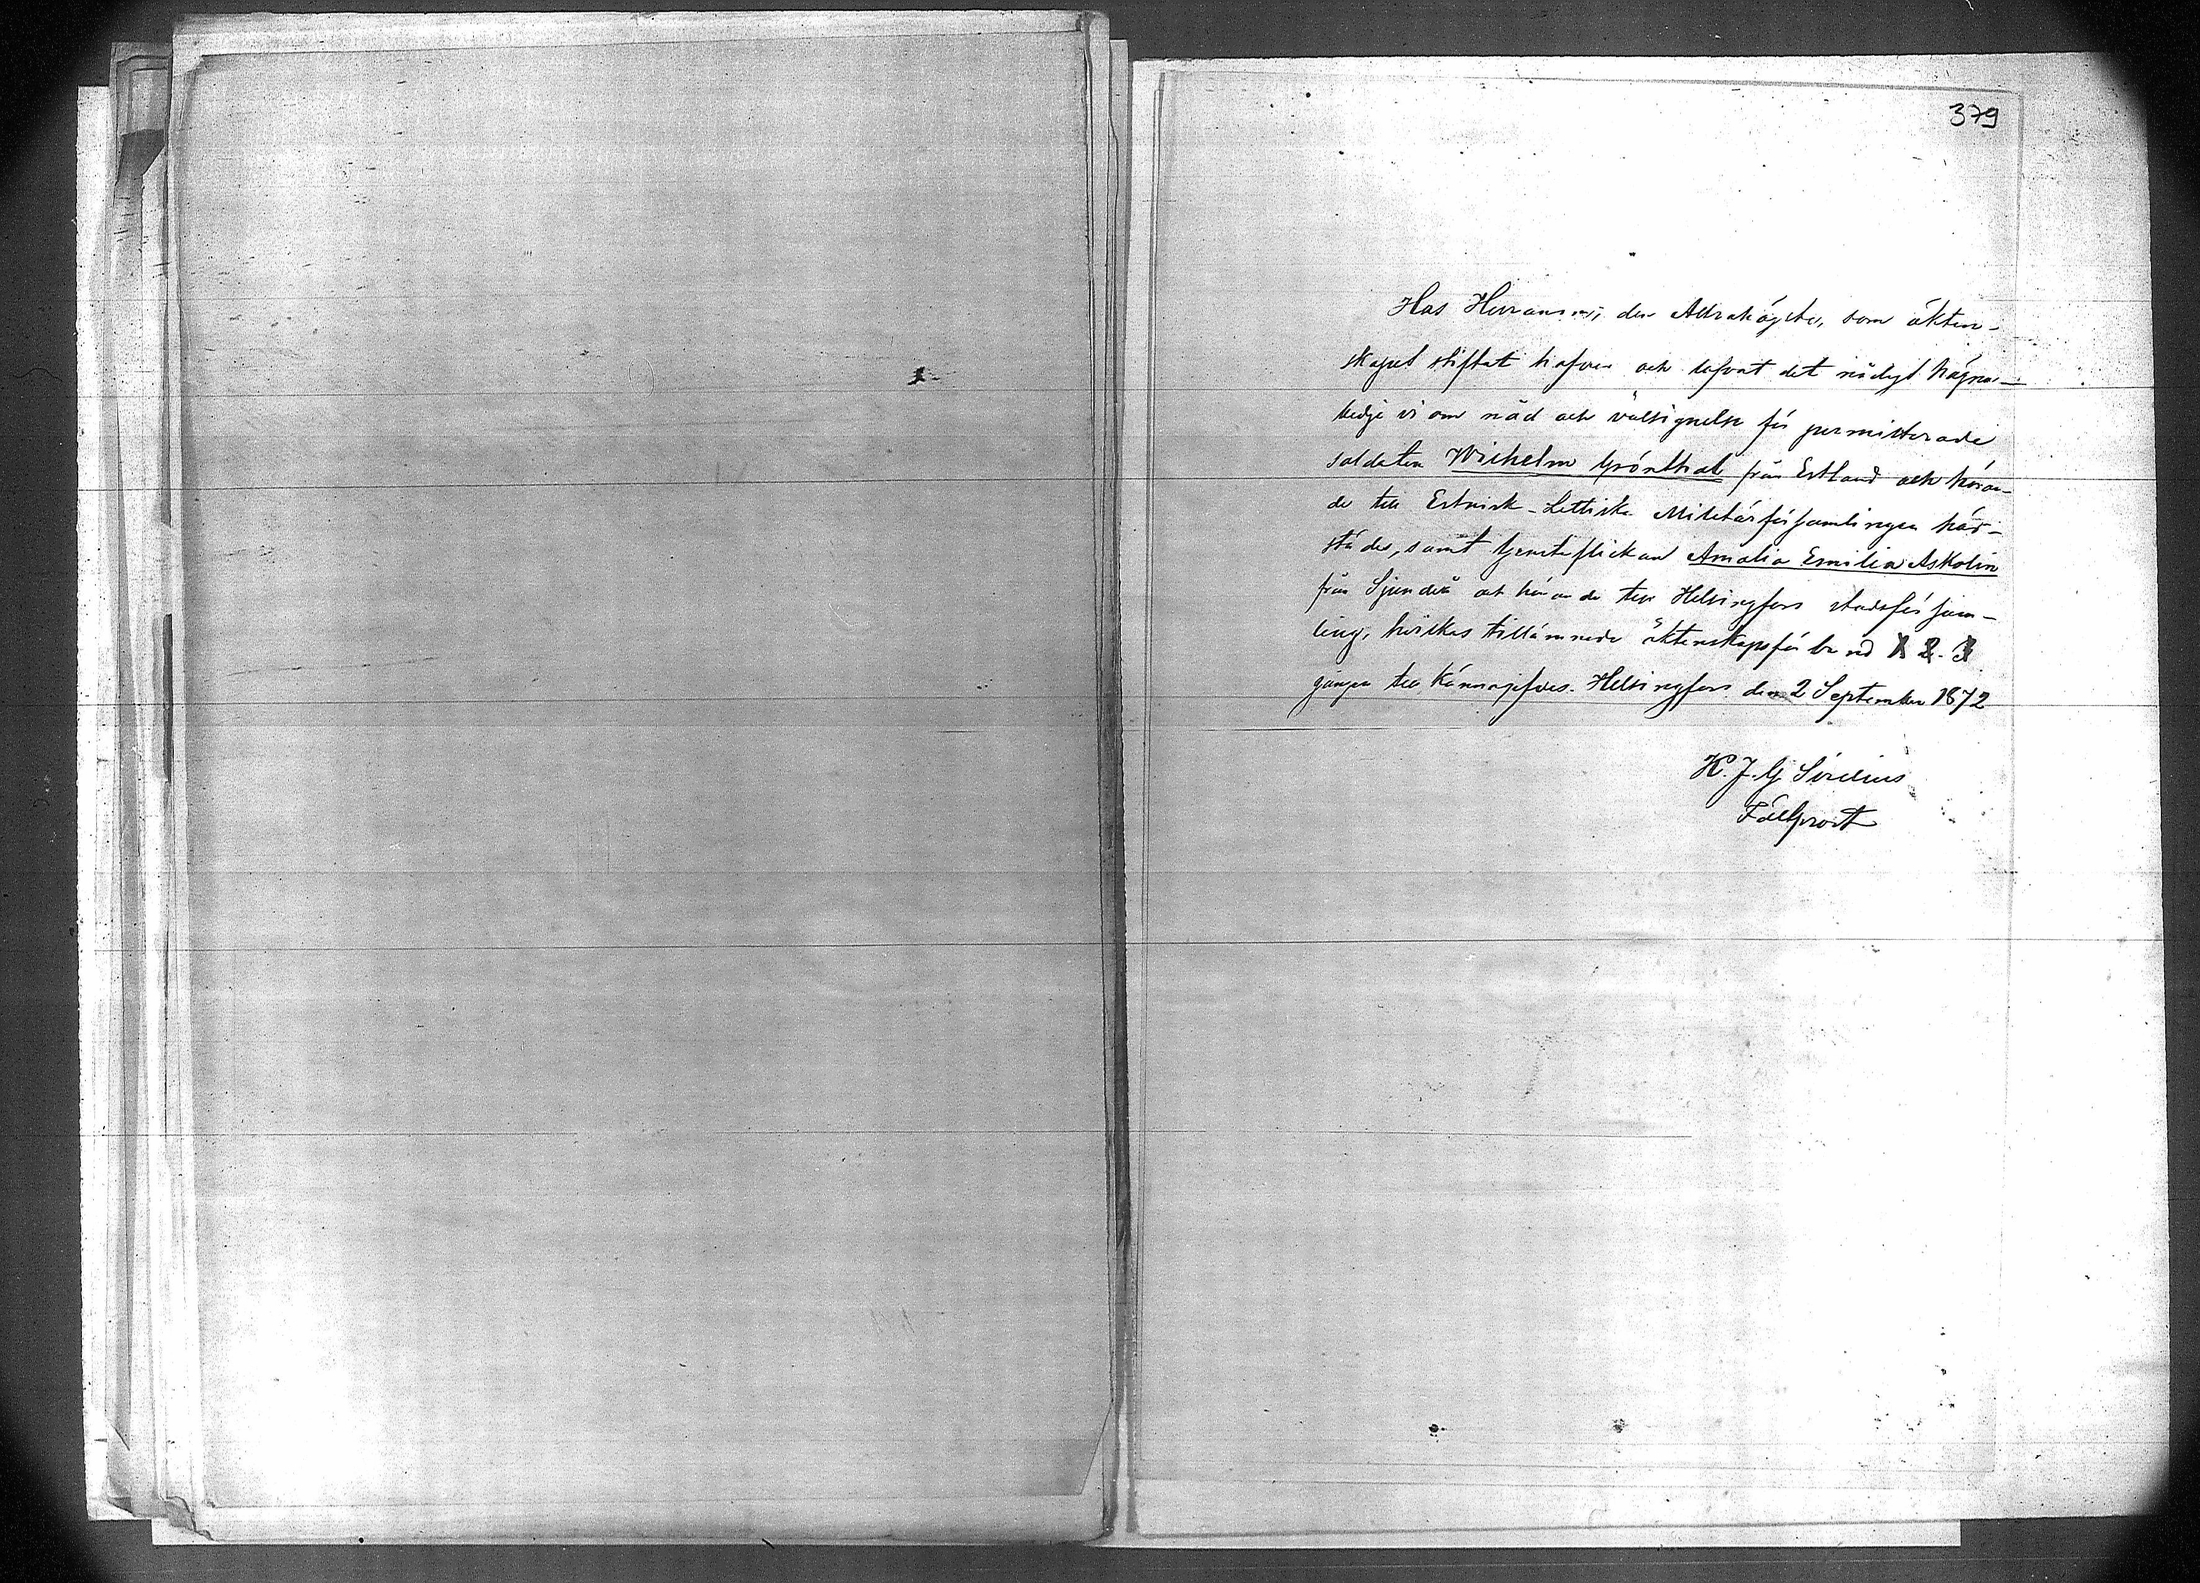 379
Hos Herranom, den Allrahögste, som äkten-
skapet stiftat hafver och lofvat det nådigt hägna
bedje vi om nåd och välsignelse för permitterade
soldaten Wilhelm Grönthal från Estland och höran-
de till Estnisk-Lettiska Militärförsamlingen här-
städes, samt tjensteflickan Amalia Emilia Askolin
från Sjundeå och hörande till Helsingfors stadsförsam-
ling, hvilkas tillämnade äktenskapsförbund 1 2. 3
gången till känna gifves. Helsingfors den 2 September 1872
K. J. G Sirelius
Fältprost